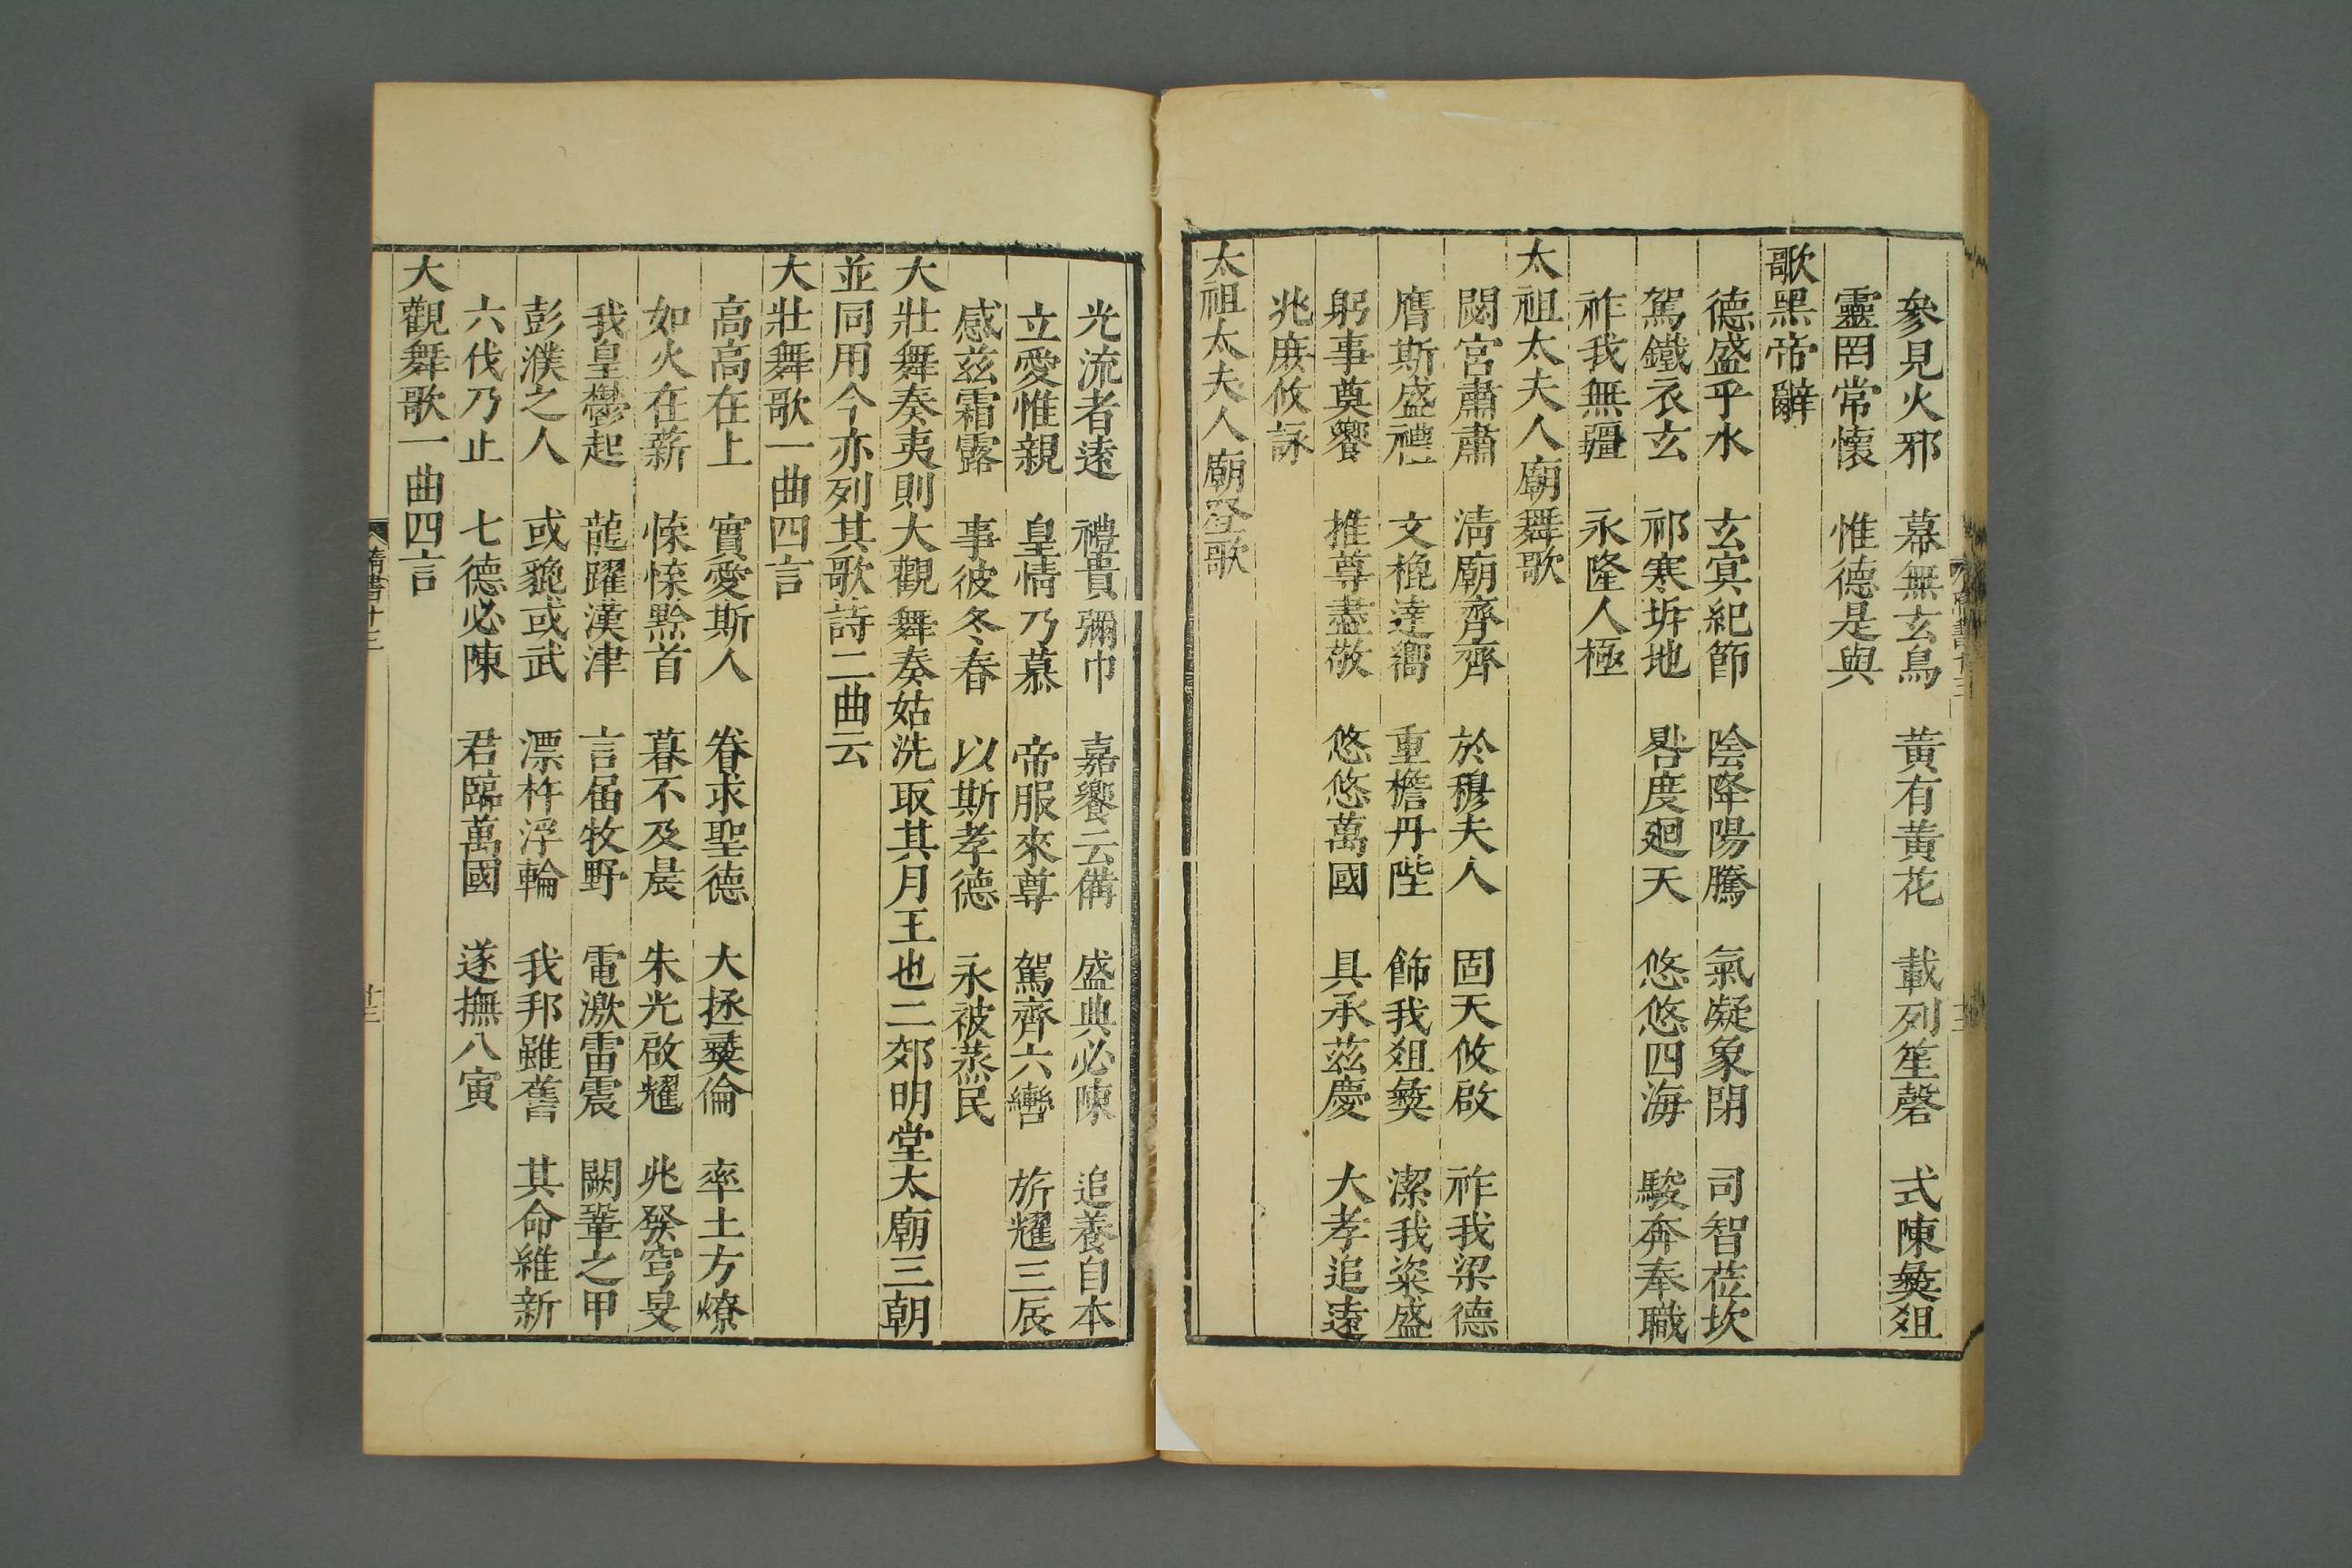 參見火邪　幕無玄鳥　黃有黃花　載列笙磬　式陳彝俎
靈罔常懷　惟德是與
歌黑帝辭
德盛乎水　玄冥紀節　陰降陽騰　氣凝象閉　司智莅坎
駕鐵衣玄　祁寒坼地　晷度廻天　悠悠四海　駿奔奉職
祚我無疆　永隆人極
太祖太夫人廟舞歌
閟宮肅肅　清廟齊齊　於穆夫人　固天攸啟　祚我梁德
膺斯盛禮　文槐達嚮　重檐丹陛　飾我俎彝　潔我粢盛
躬事奠饗　推尊盡敬　悠悠萬國　具承茲慶　大孝追遠
兆庶攸詠
太祖太夫人廟登歌
光流者遠　禮貴彌巾　嘉饗云備　盛典必陳　追養自本
立愛惟親　皇情乃慕　帝服來尊　駕齊六轡　旂耀三辰
感茲霜露　事彼冬春　以斯孝德　永被蒸民
大壯舞奏夷則大觀舞奏姑洗取其月王也二郊明堂太廟三朝
並同用今亦列其歌詩二曲云
大壯舞歌一曲四言
高高在上　實愛斯人　眷求聖德　大拯彝倫　率土方燎
如火在薪　悚悚黔首　暮不及晨　朱光啟耀　兆發穹旻
我皇鬱起　龍躍漢津　言屆牧野　電激雷震　闕鞏之甲
彭濮之人　或貔或武　漂杵浮輪　我邦雖舊　其命維新
六伐乃止　七德必陳　君臨萬國　遂撫八寅
大觀舞歌一曲四言
隋書十三